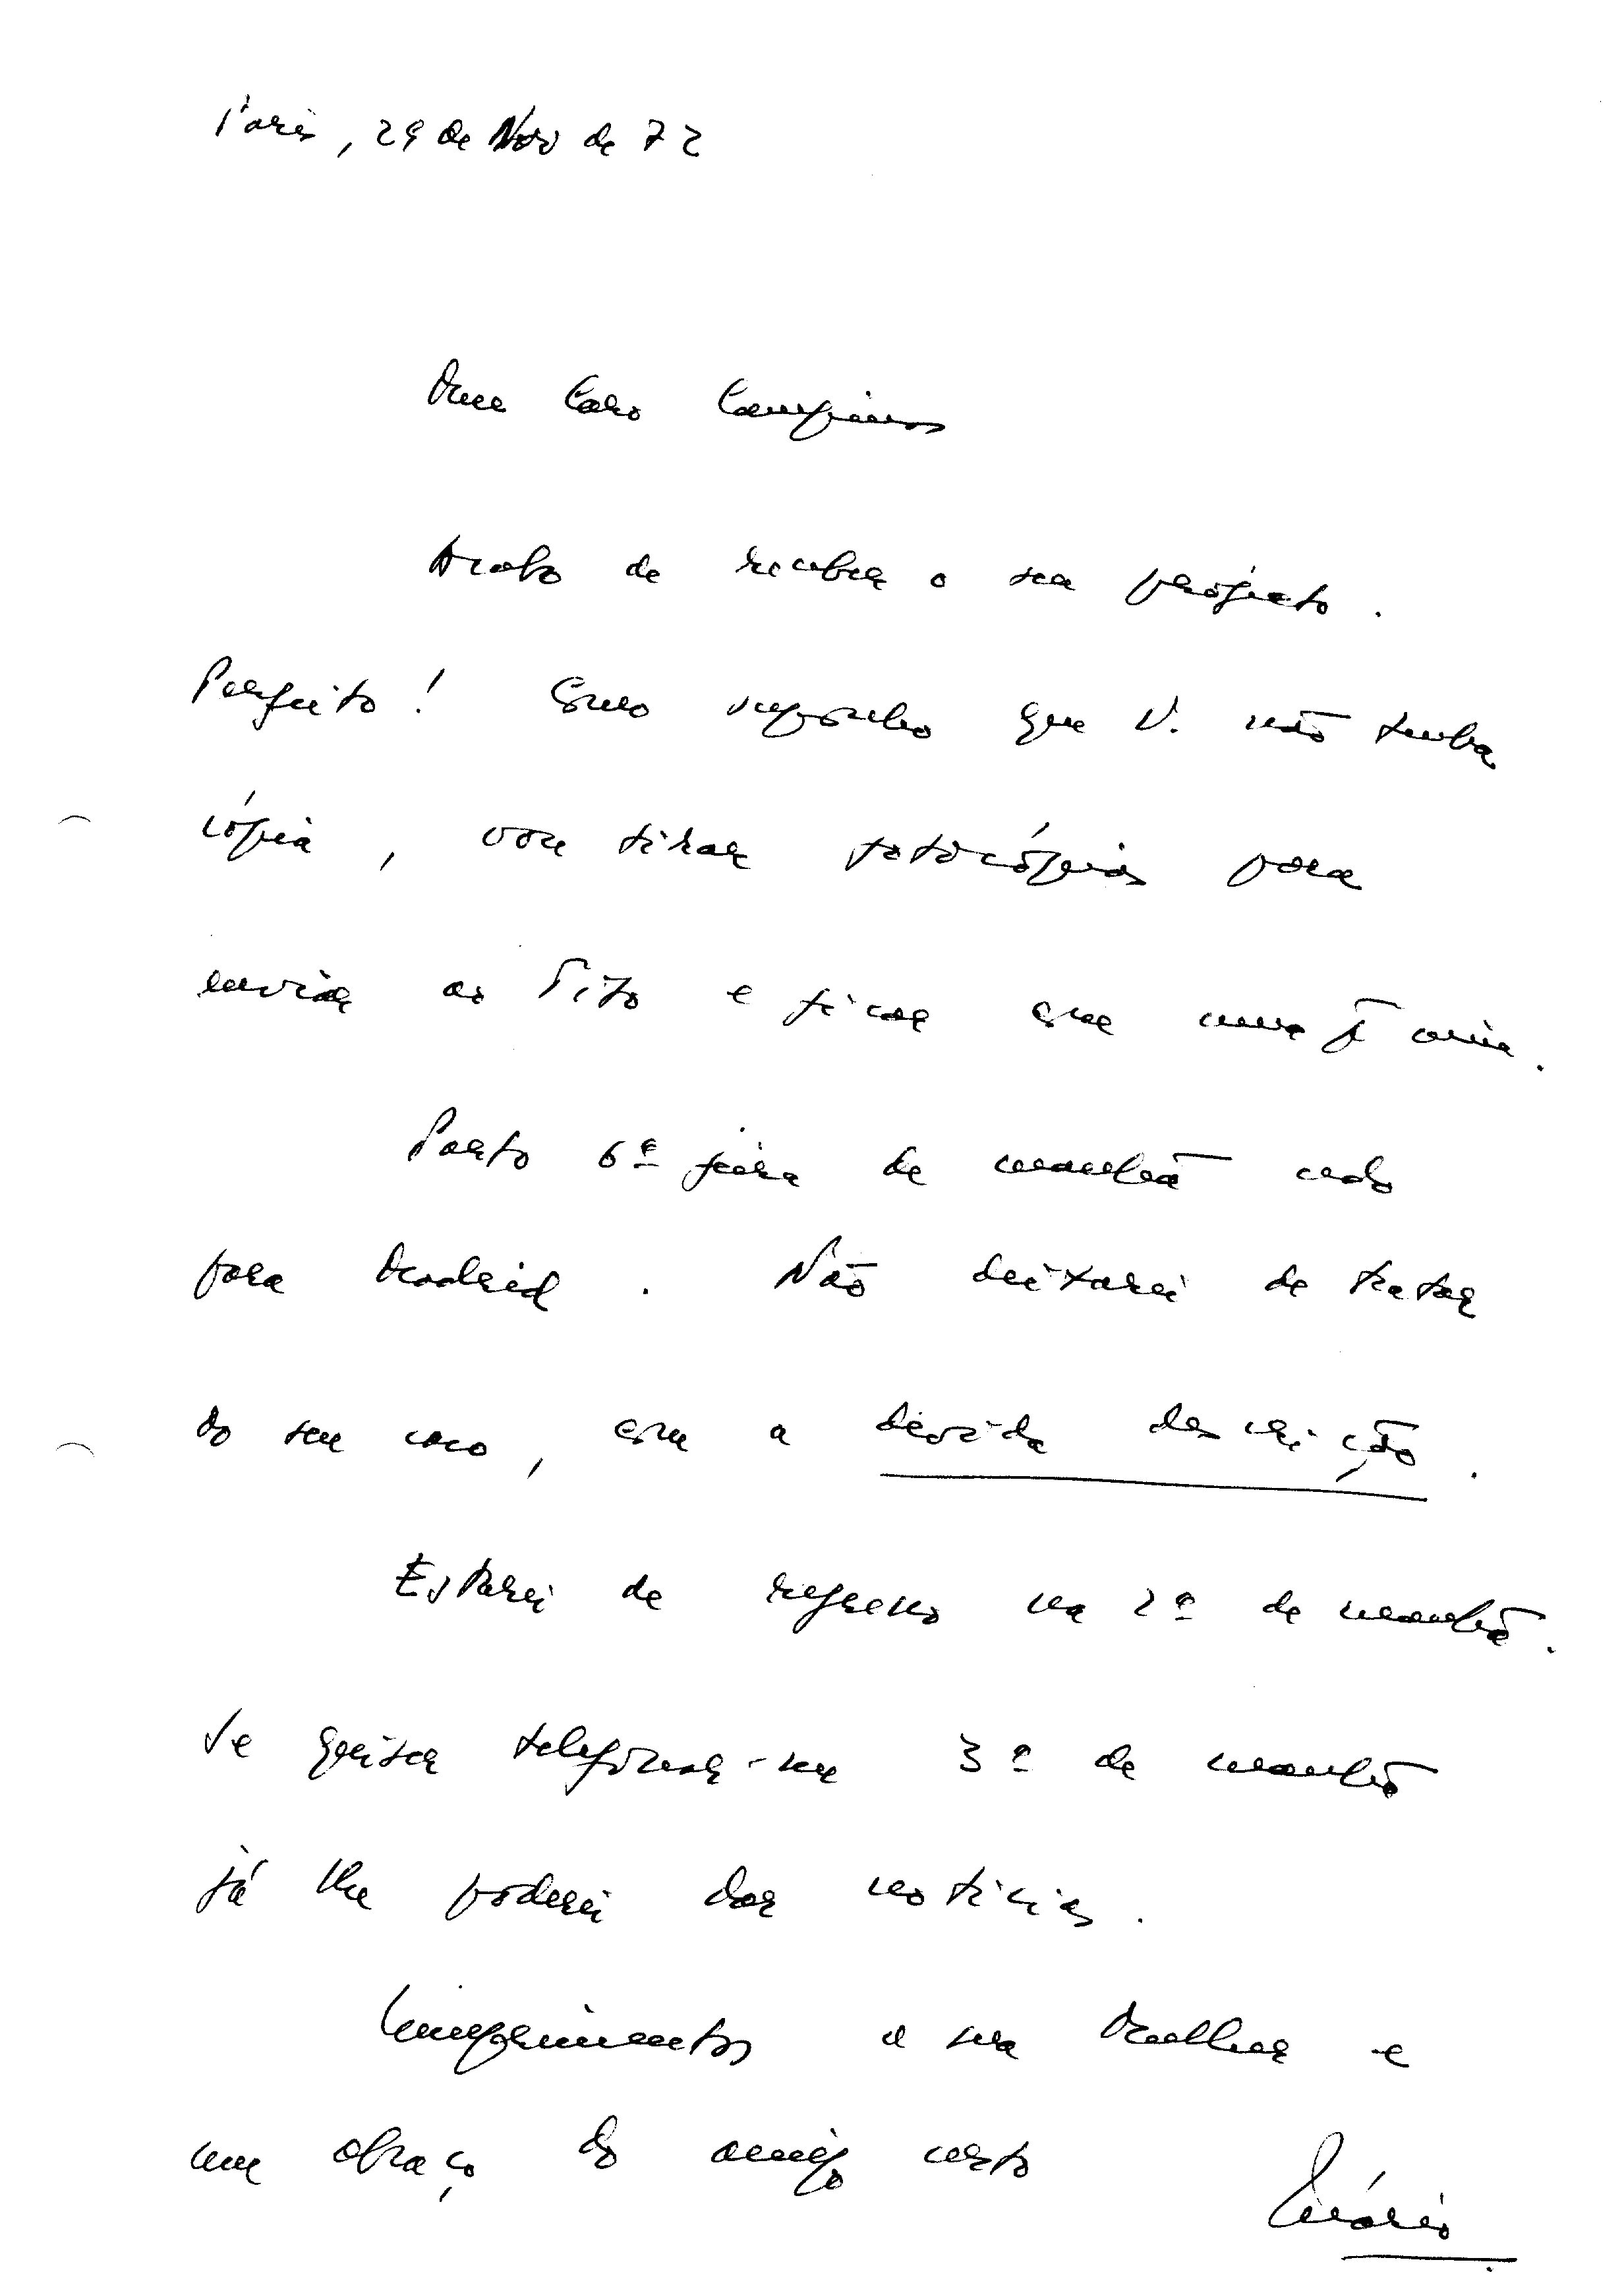 Paris, 29 de Nov de 72
Meu Caro Campinos
Acabo de receber o seu projecto.
Perfeito! Como suponho que V. não tenha
cópia, vou tirar fotocópias para
enviar ao Tito e ficar com uma p.ª mim.
Parto 6ª feira de manhã cedo
para Madrid. Não deixarei de tratar
do seu caso, com a devida descrição.
Estarei de regresso na 2ª de manhã.
Se quiser telefonar-me 3ª de manhã
já lhe poderei dar noticias.
Cumprimentos a sua Mulher e
um abraço do amigo certo
Mário